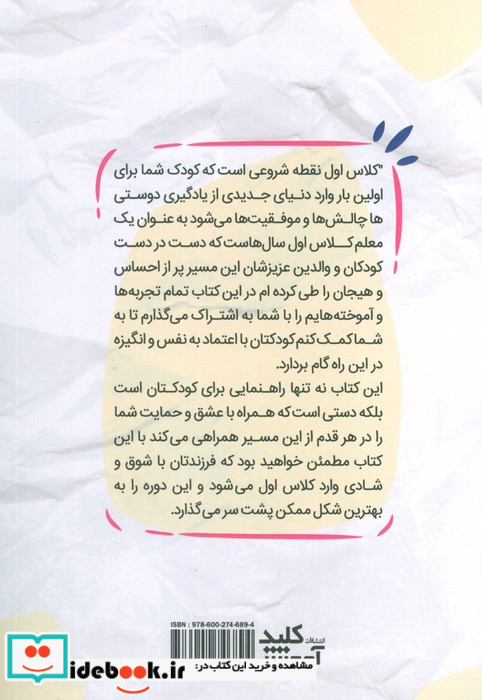 "کلاس اول نقطه شروعی است که کودک شما برای
اولین بار وارد دنیای جدیدی از یادگیری دوستی
ها چالش‌ها و موفقیت‌ها می‌شود به عنوان یک
معلم کلاس اول سال‌هاست که دست در دست
کودکان و والدین عزیزشان این مسیر پر از احساس
و هیجان را طی کرده ام در این کتاب تمام تجربه‌ها
و آموخته‌هایم را با شما به اشتراک می‌گذارم تا به
شما کمک کنم کودکتان با اعتماد به نفس و انگیزه
در این راه گام بردارد.
این کتاب نه تنها راهنمایی برای کودکتان است
بلکه دستی است که همراه با عشق و حمایت شما
را در هر قدم از این مسیر همراهی می‌کند با این
کتاب مطمئن خواهید بود که فرزندتان با شوق و
شادی وارد کلاس اول می‌شود و این دوره را به
بهترین شکل ممکن پشت سر می‌گذارد.
ISBN : 978-600-274-689-4
انتشارات
کلید
idebook.ir
مشاهده و خرید این کتاب در: